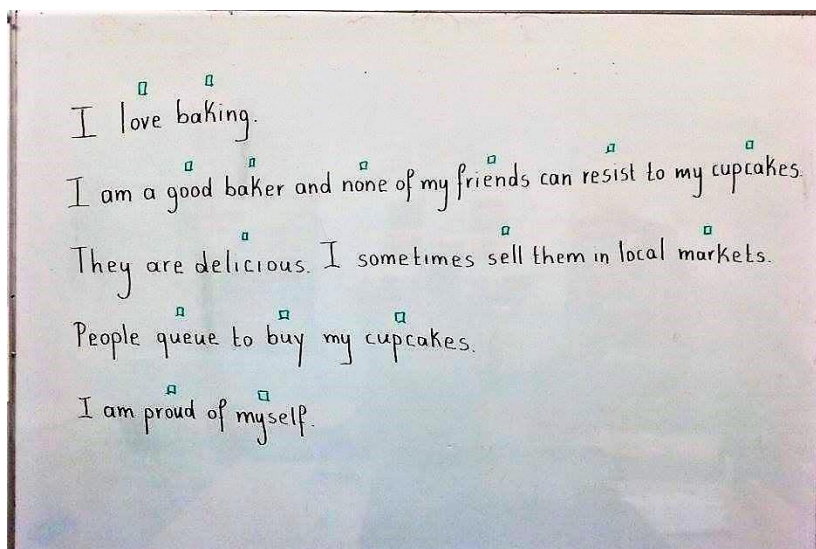 I love baking.
I am a good baker and none of my friends can resist to my cupcakes.
They are delicious. I sometimes sell them in local markets.
People queue to buy my cupcakes.
I am proud of myself.